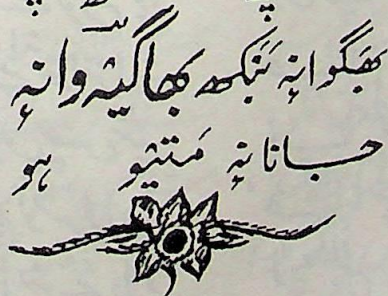 بَھگوانہٕ بَنَکھ بھاگیہٕ وانہٕ
جانانہٕ مَتیو ہو